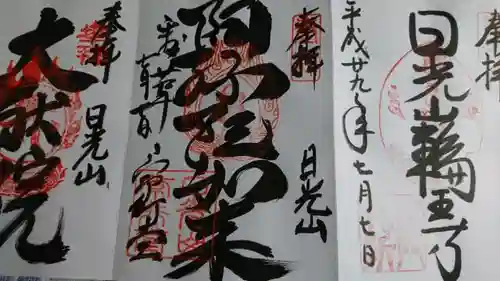 奉拝
日光山輪王寺
平成廿九年七月七日
奉拝
日光山
阿弥陀如来
奉拝
日光山
大猷院